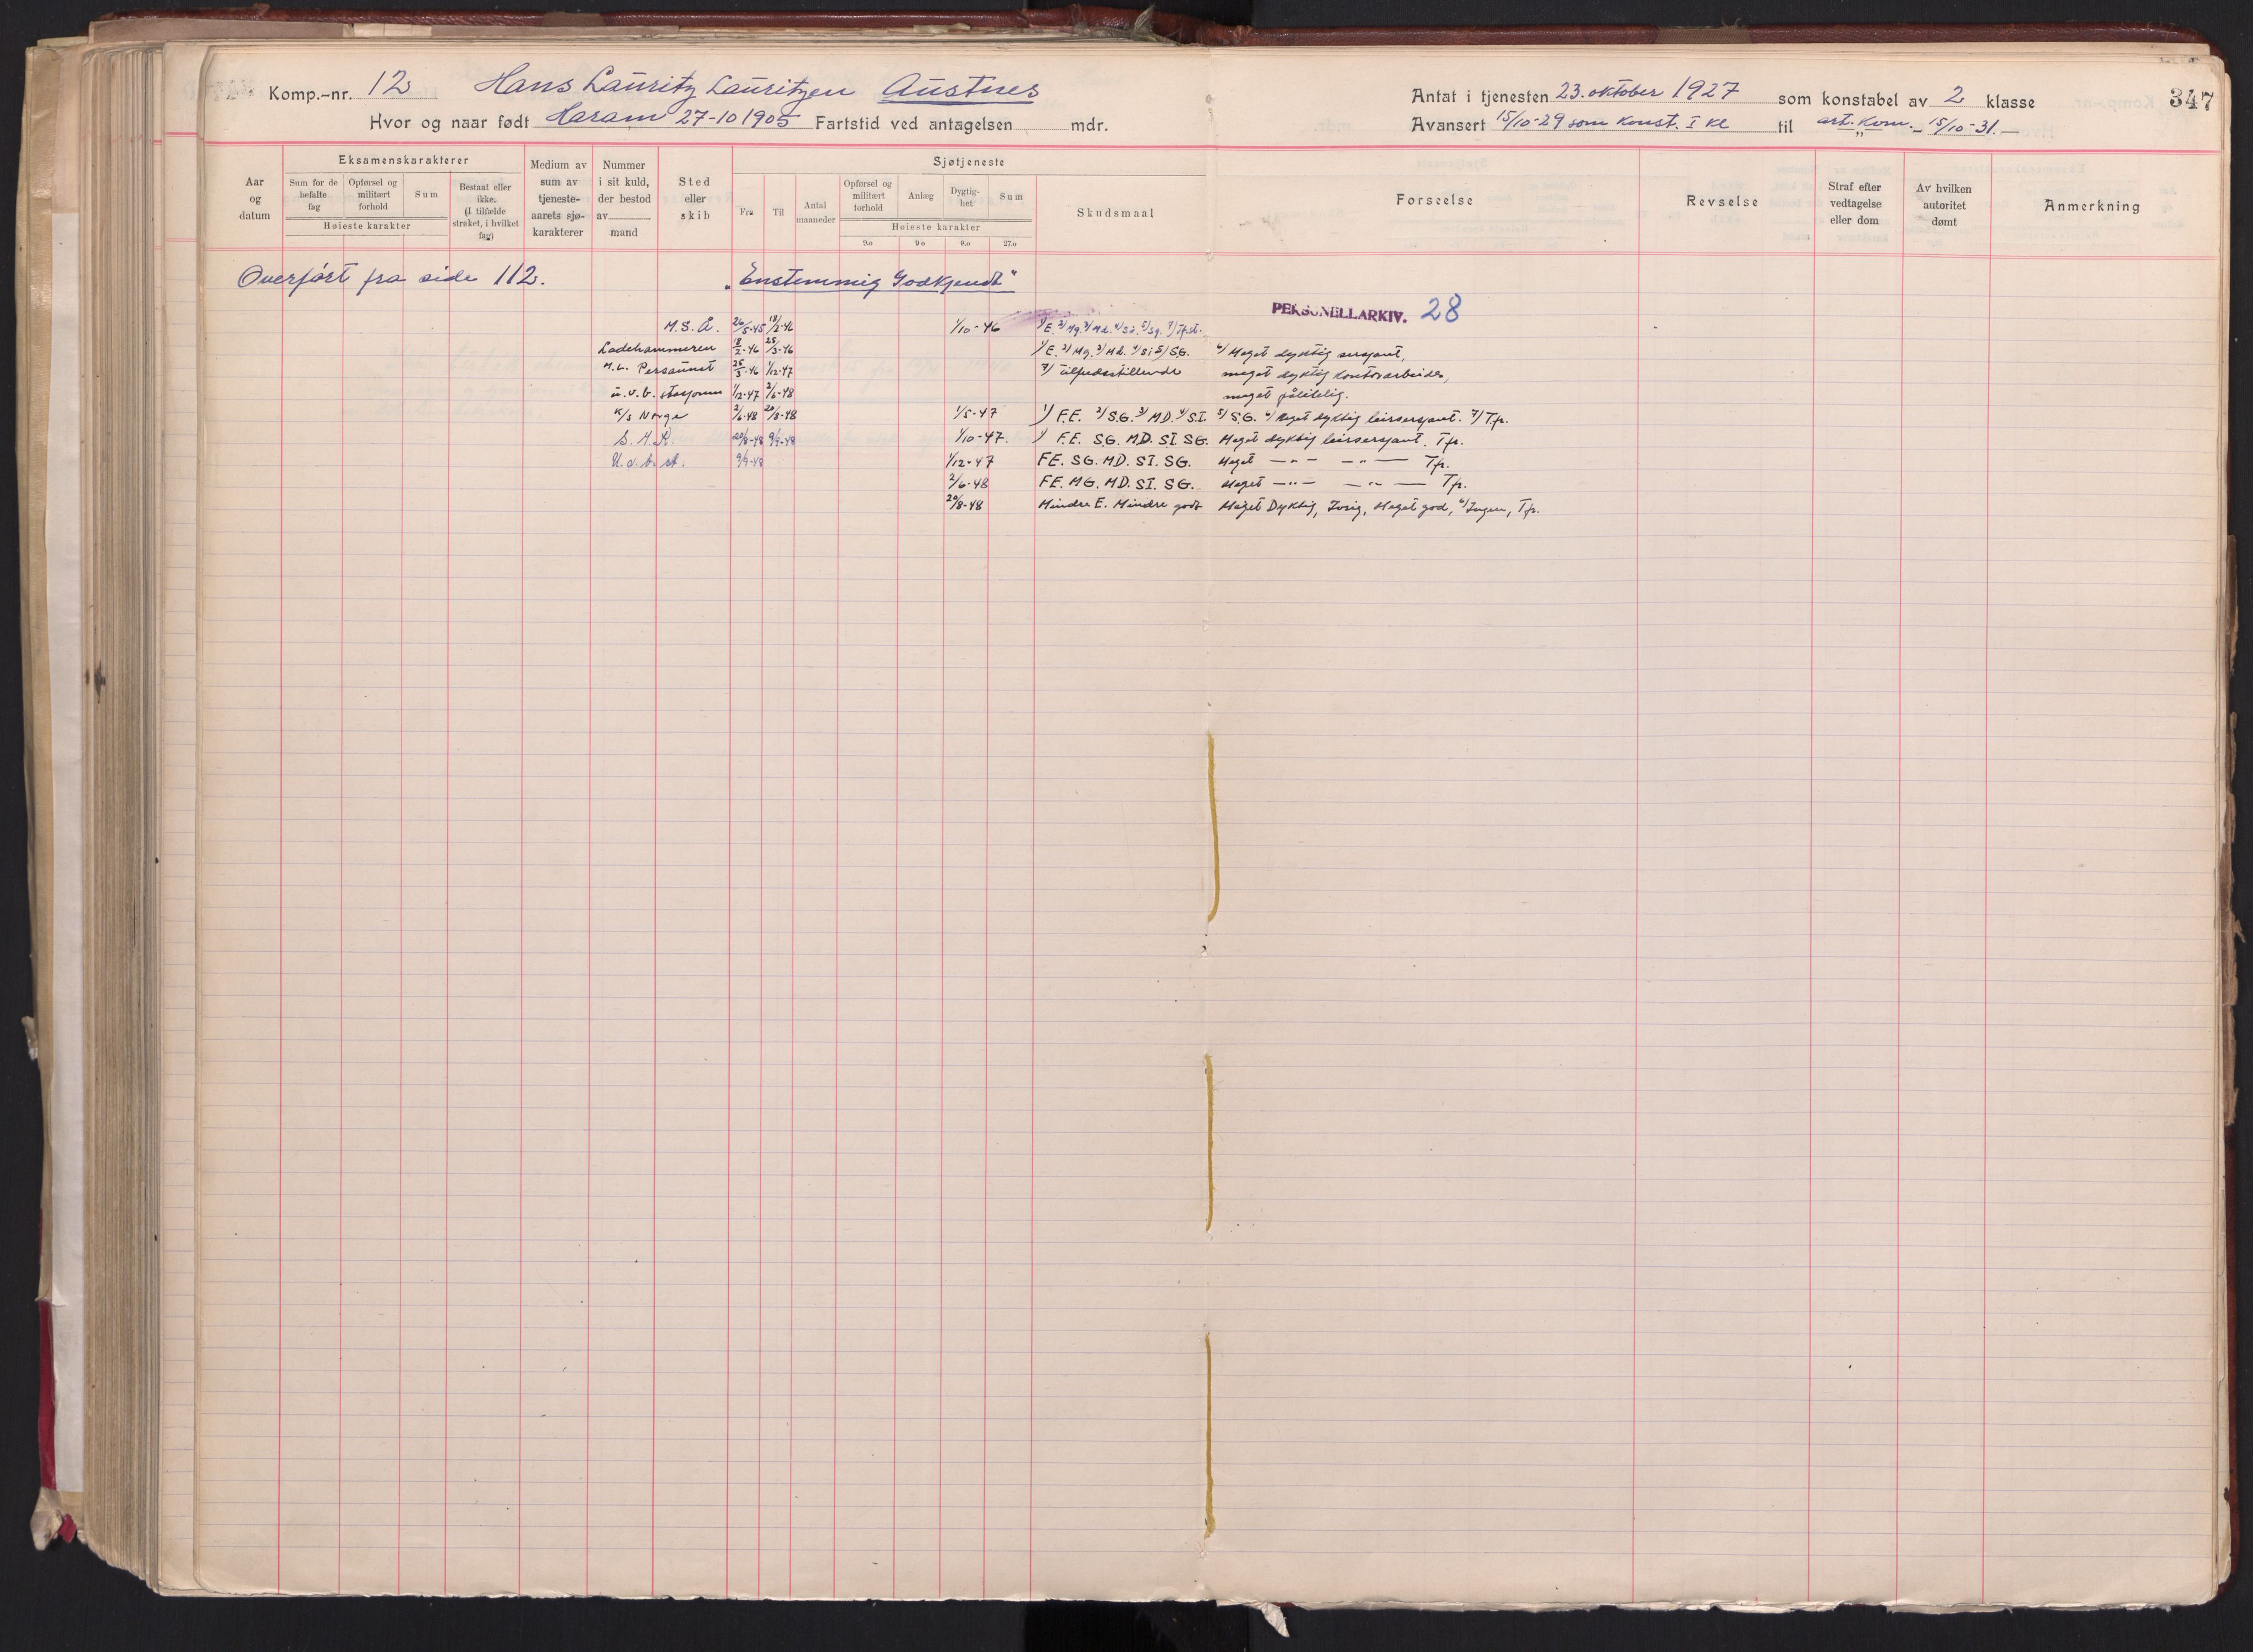 Komp.-nr. 12 Hans Lauritz Lauritzen Austnes
Hvor og naar født Haram 27-10 1905 Fartstid ved antagelsen mdr.
Antat i tjenesten 23. oktober 1927 som konstabel av 2 klasse 347
Avansert 15/10-29 som Konst. I kl til art. Kom. 15/10-31.-
Aar og datum
Eksamenskarakterer
Sum for de befalte fag
Opførsel og militært forhold
Sum
Høieste karakter
Bestaat eller ikke. (I tilfælde strøket, i hvilket fag)
Medium av sum av tjeneste-aarets sjø-karakterer
Nummer i sit kuld, der bestod av mand
Sted eller skib
Sjøtjeneste
Fra
Til
Antal maaneder
Opførsel og militært forhold
Anlæg
Dygtig-het
Sum
Høieste karakter
9.0 9.0 9.0 27.0
Skudsmaal
Forseelse
Revselse
Straf efter vedtagelse eller dom
Av hvilken autoritet dømt
Anmerkning
Overført fra side 112. „Enstemmig Godkjendt"
PERSONELLARKIV. 28
M.S.Å. 26/5-45 18/2-46 1/10-46 1/E. 2/Mg. 3/Md. 4/Si. 5/Sg. 7/Tfst.
Ladehammeren 18/2-46 25/3-46 1/E. 2/Mg. 3/Md. 4/Si 5/SG. 6/ Meget dyktig sersjant,
Persaunet 25/3-46 1/12-47 7/ tilfredsstillende meget dyktig kontorarbeider,
u.v.b. stasjonen 1/12-47 2/6-48 meget pålitelig.
K/S Norge 2/6-48 20/8-48 1/5-47 1/ F.E. 2/S.G. 3/MD. 4/S.I. 5/S.G. 6/ Meget dyktig leirsersjant. 7/Tfr.
20/8-48 9/9-48 1/10-47. 1/ F.E. S.G. MD. SI. SG. Meget dyktig leirsersjant. Tfr.
U.v.b. st. 9/9-48 1/12-47 FE. SG. MD. SI. SG. Meget —"— —"— Tfr.
2/6-48 FE. MG. MD. SI. SG. Meget —"— —"— Tfr.
20/8-48 Mindre E. Mindre godt Meget Dyktig, Ivrig, Meget god, 6/Ingen, Tfr.